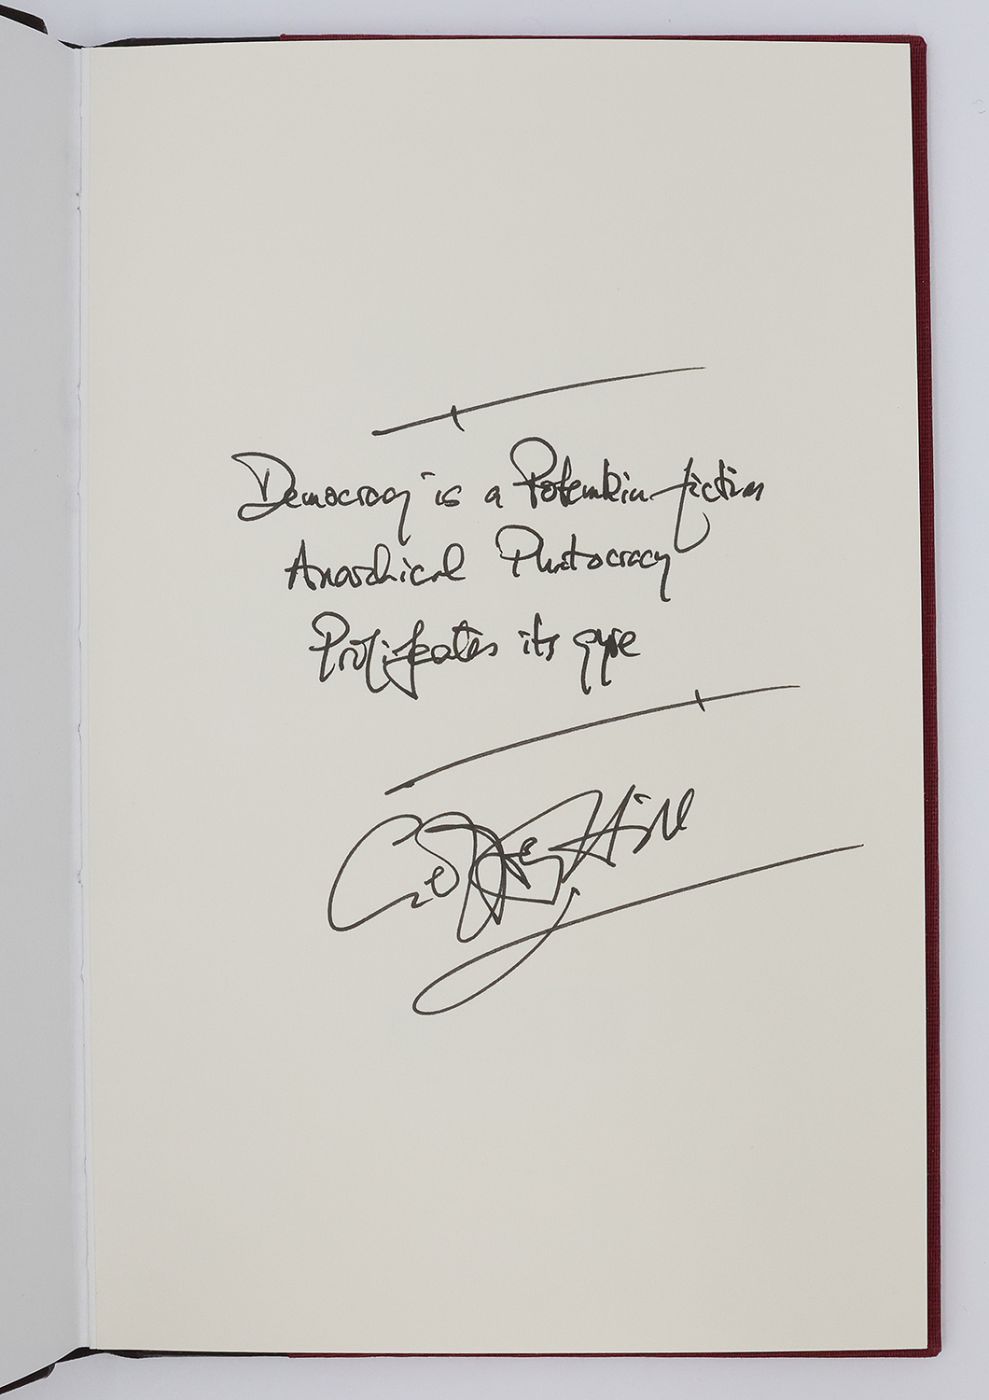 Democracy is a Potemkin fiction
Anarchical Plutocracy
Proliferates its gyre
Geoffrey Hill